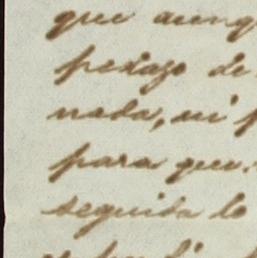 que aunq
pedazo de
nada, ni p
para que
seguida lo